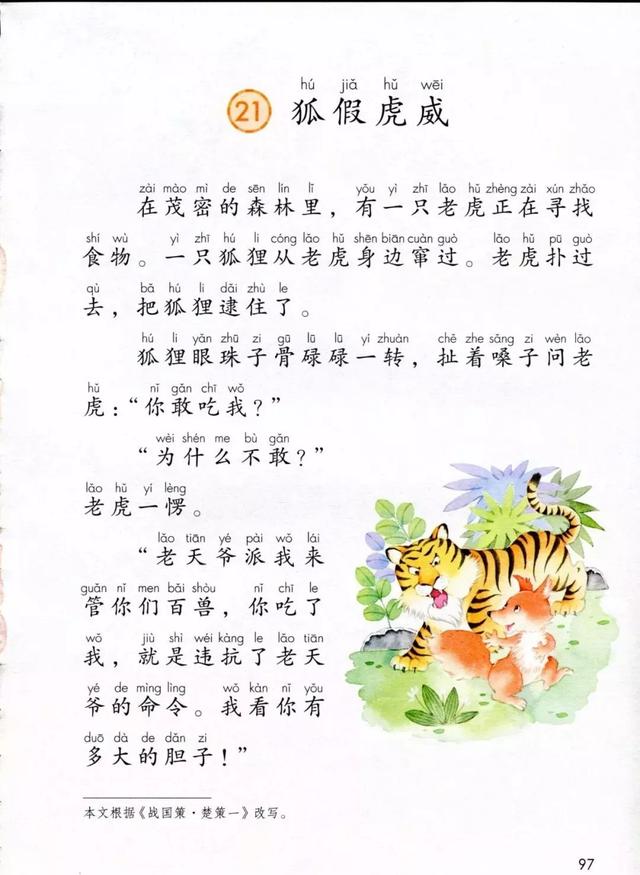 hú jiǎ hǔ wēi
21 狐假虎威
zài mào mì de sēn lín lǐ yǒu yì zhī lǎo hǔ zhèng zài xún zhǎo
在茂密的森林里，有一只老虎正在寻找
shí wù yì zhī hú li cóng lǎo hǔ shēn biān cuàn guò lǎo hǔ pū guò
食物。一只狐狸从老虎身边窜过。老虎扑过
qù bǎ hú li dǎi zhù le
去，把狐狸逮住了。
hú li yǎn zhū zi gū lū lū yí zhuàn chě zhe sǎng zi wèn lǎo
狐狸眼珠子骨碌碌一转，扯着嗓子问老
hǔ nǐ gǎn chī wǒ
虎：“你敢吃我？”
wèi shén me bù gǎn
“为什么不敢？”
lǎo hǔ yí lèng
老虎一愣。
lǎo tiān yé pài wǒ lái
“老天爷派我来
guǎn nǐ men bǎi shòu nǐ chī le
管你们百兽，你吃了
wǒ jiù shì wéi kàng le lǎo tiān
我，就是违抗了老天
yé de mìng lìng wǒ kàn nǐ yǒu
爷的命令。我看你有
duō dà de dǎn zi
多大的胆子！”
本文根据《战国策·楚策一》改写。
97